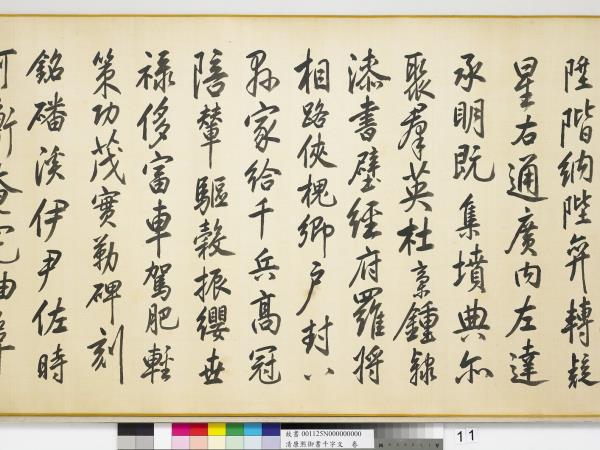 陞階納陛弁轉疑
星右通廣內左達
承明既集墳典亦
聚羣英杜稾鍾隸
漆書壁經府羅將
相路俠槐卿戶封八
縣家給千兵高冠
陪輦驅轂振纓世
祿侈富車駕肥輕
策功茂實勒碑刻
銘磻溪伊尹佐時
阿衡奄宅曲阜
故書 001125N000000000
清康熙御書千字文 卷
11